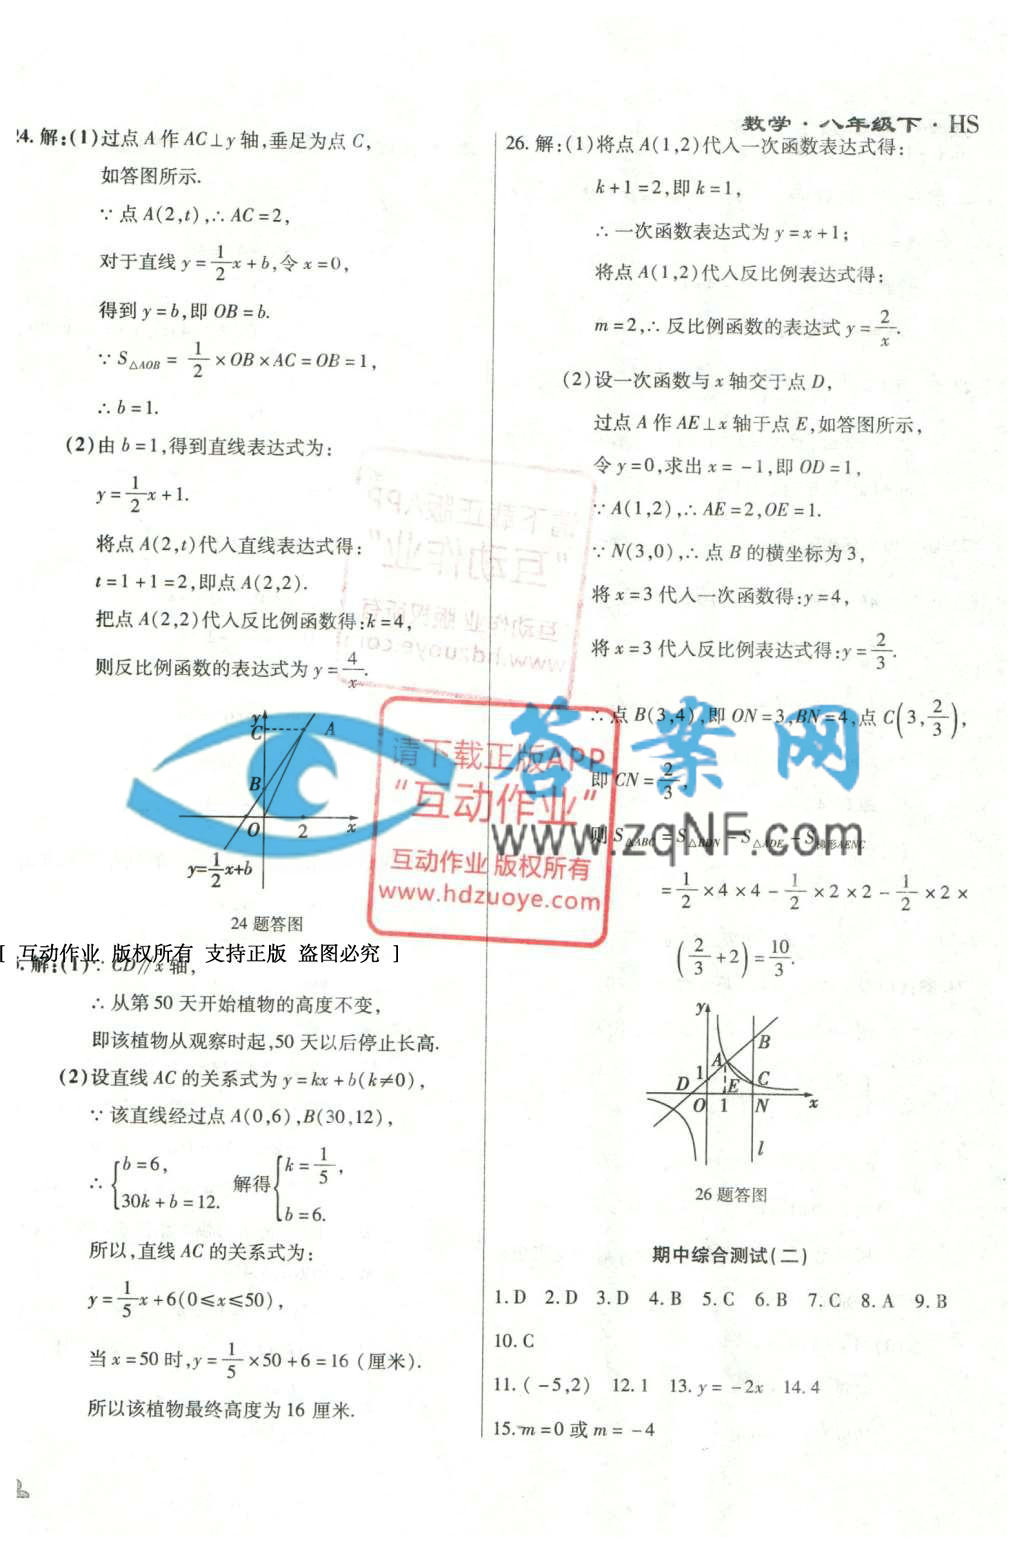 数学·八年级下·HS
24. 解:(1)过点 A 作 AC⊥y 轴,垂足为点 C,
如答图所示.
∵点 A(2,t),∴AC=2,
对于直线 y=1/2x+b,令 x=0,
得到 y=b,即 OB=b.
∵S△AOB=1/2×OB×AC=OB=1,
∴b=1.
(2)由 b=1,得到直线表达式为:
y=1/2x+1.
将点 A(2,t)代入直线表达式得:
t=1+1=2,即点 A(2,2).
把点 A(2,2)代入反比例函数得:k=4,
则反比例函数的表达式为 y=4/x.
y
C
A
B
O
2
x
y=1/2x+b
24 题答图
[ 互动作业 版权所有 支持正版 盗图必究 ]
解:(1)∵CD∥x 轴,
∴从第 50 天开始植物的高度不变,
即该植物从观察时起,50 天以后停止长高.
(2)设直线 AC 的关系式为 y=kx+b(k≠0),
∵该直线经过点 A(0,6),B(30,12),
∴{b=6, 30k+b=12. 解得{k=1/5, b=6.
所以,直线 AC 的关系式为:
y=1/5x+6(0≤x≤50),
当 x=50 时,y=1/5×50+6=16(厘米).
所以该植物最终高度为 16 厘米.
26. 解:(1)将点 A(1,2)代入一次函数表达式得:
k+1=2,即 k=1,
∴一次函数表达式为 y=x+1;
将点 A(1,2)代入反比例表达式得:
m=2,∴反比例函数的表达式 y=2/x.
(2)设一次函数与 x 轴交于点 D,
过点 A 作 AE⊥x 轴于点 E,如答图所示,
令 y=0,求出 x=-1,即 OD=1,
∵A(1,2),∴AE=2,OE=1.
∵N(3,0),∴点 B 的横坐标为 3,
将 x=3 代入一次函数得:y=4,
将 x=3 代入反比例表达式得:y=2/3.
∴点 B(3,4),即 ON=3,BN=4,点 C(3,2/3),
即 CN=2/3,
则 S△ABC=S△BDN-S△ADE-S梯形AENC
=1/2×4×4-1/2×2×2-1/2×2×
(2/3+2)=10/3.
y
B
A
1
D
E
C
O
1
N
x
l
26 题答图
期中综合测试(二)
1. D 2. D 3. D 4. B 5. C 6. B 7. C 8. A 9. B
10. C
11. (-5,2) 12. 1 13. y=-2x 14. 4
15. m=0 或 m=-4
请下载正版APP
“互动作业”
互动作业 版权所有
www.hdzuoye.com
答案网
www.zqNF.com
请下载正版APP
“互动作业”
互动作业 版权所有
www.hdzuoye.com